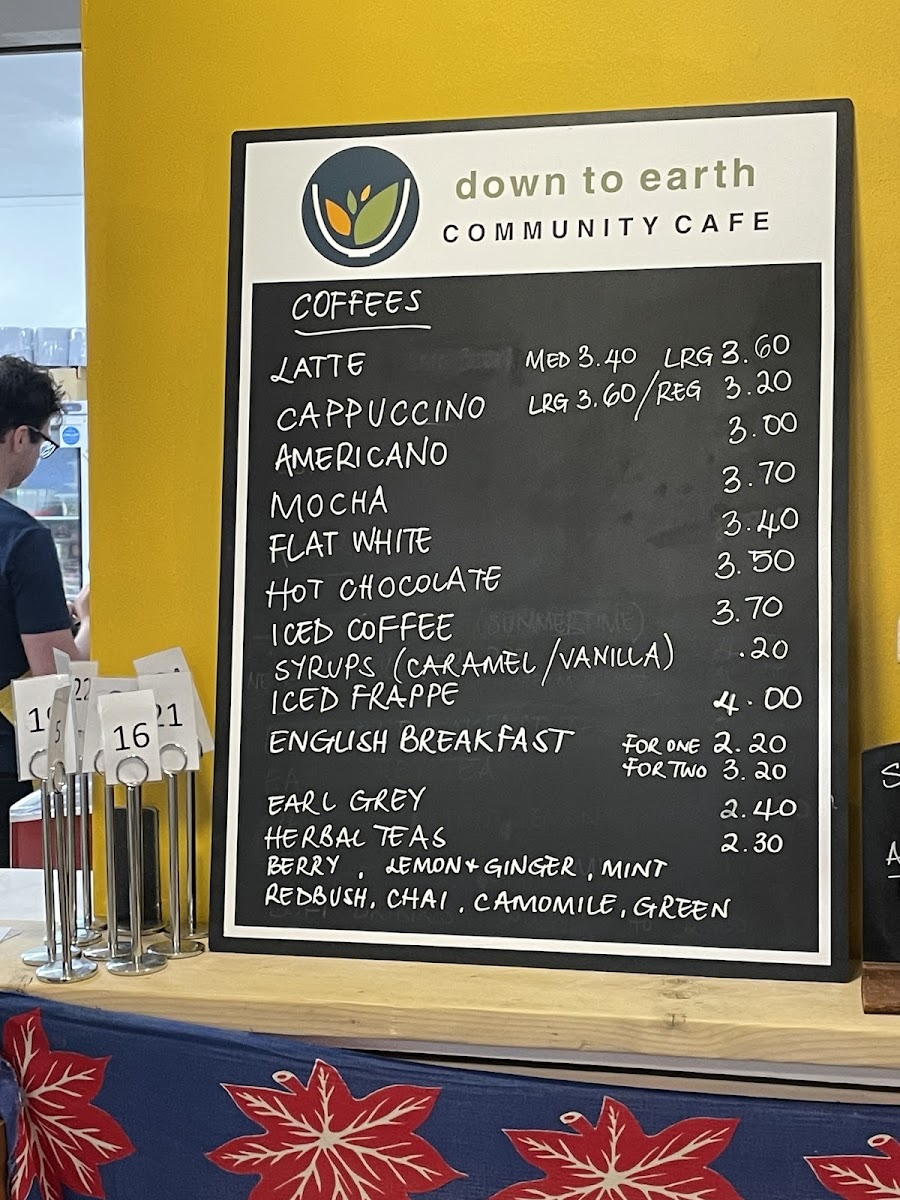 down to earth
COMMUNITY CAFE
COFFEES
LATTE MED 3.40 LRG 3.60
CAPPUCCINO LRG 3.60/REG 3.20
AMERICANO 3.00
MOCHA 3.70
FLAT WHITE 3.40
HOT CHOCOLATE 3.50
ICED COFFEE (SUMMERTIME) 3.70
SYRUPS (CARAMEL/VANILLA) .20
ICED FRAPPE 4.00
ENGLISH BREAKFAST FOR ONE 2.20
FOR TWO 3.20
EARL GREY 2.40
HERBAL TEAS 2.30
BERRY, LEMON + GINGER, MINT
REDBUSH, CHAI, CAMOMILE, GREEN
22
5
16
21